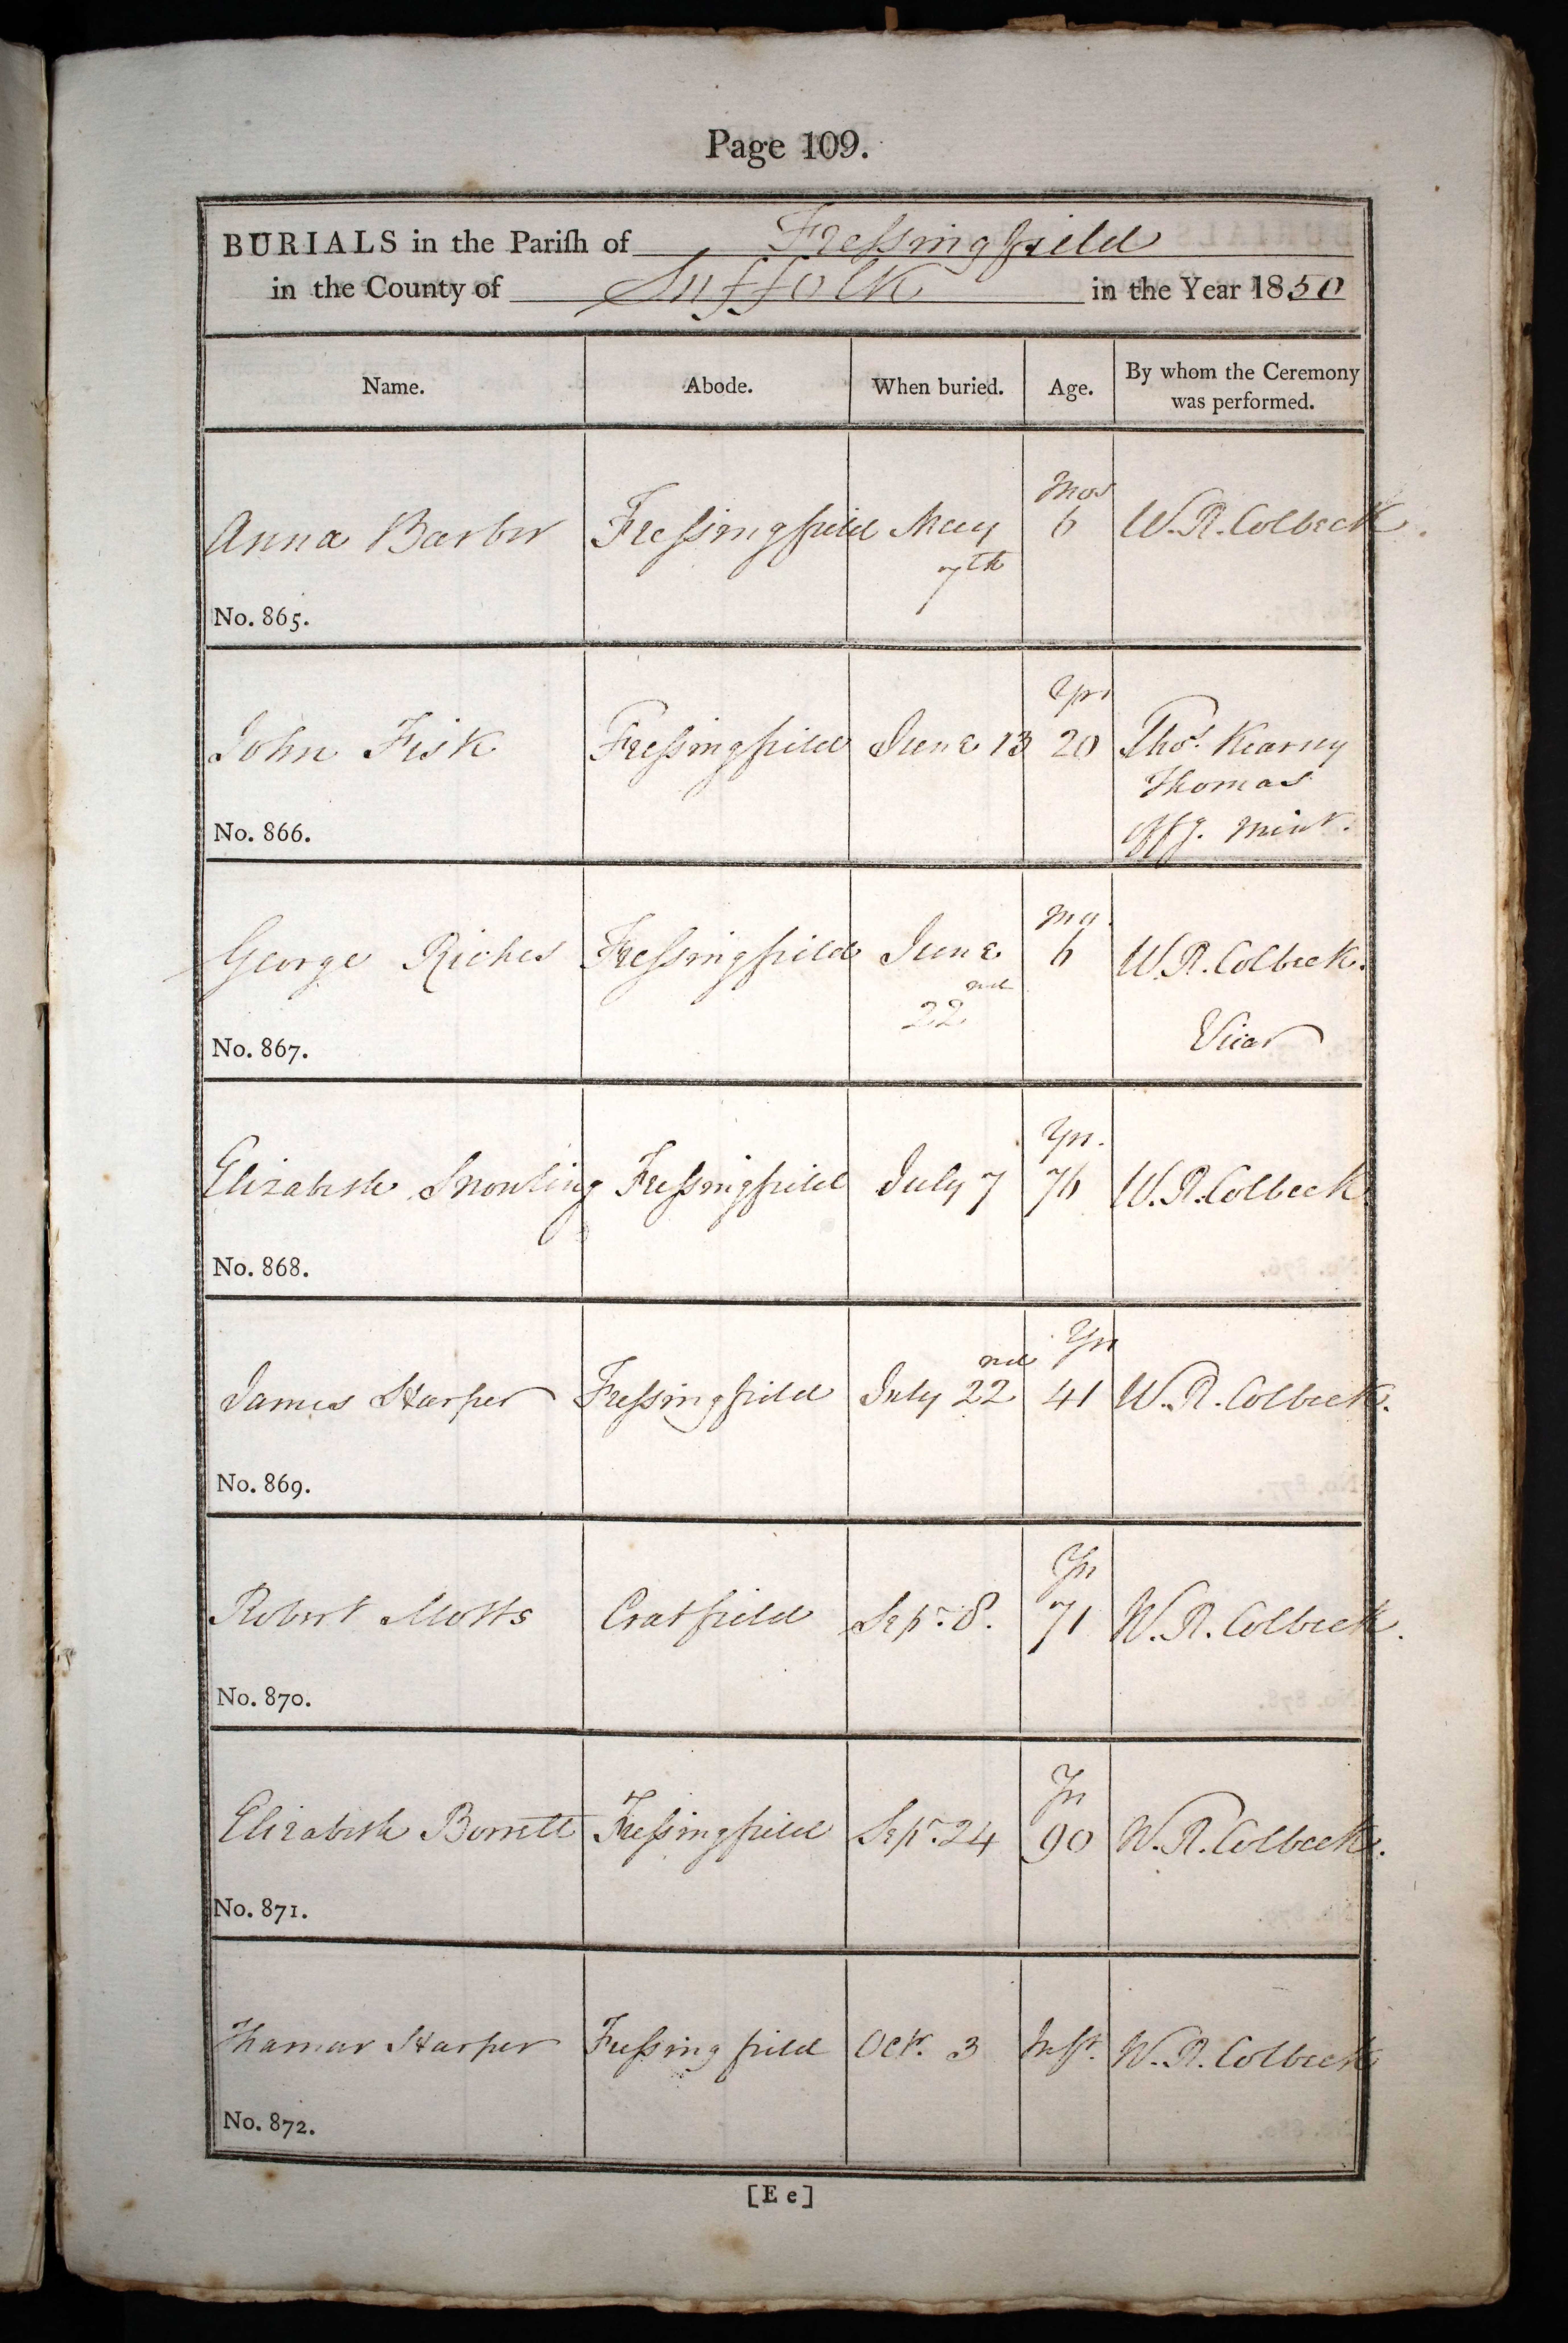 Page 109.
BURIALS in the Pariſh of Freſsingfield
in the County of Suffolk in the Year 1850
Name. Abode. When buried. Age. By whom the Ceremony was performed.
Mos
Anna Barber Freſsingfield May 6 W. R. Colbeck.
7th
No. 865.
Yrs
John Fisk Freſsingfield June 13 20 Thos. Kearney
Thomas
No. 866. Offg. Minr.
Mo.
George Riches Freſsingfield June 6 W. R. Colbeck.
22nd
No. 867. Vicar
Yrs.
Elizabeth Snowling Freſsingfield July 7 76 W. R. Colbeck
No. 868.
Yrs
James Harper Freſsingfield July 22nd 41 W. R. Colbeck.
No. 869.
Yrs
Robert Motts Cratfield Sepr. 8. 71 W. R. Colbeck.
No. 870.
Yrs
Elizabeth Borrett Freſsingfield Sepr. 24 90 W. R. Colbeck.
No. 871.
Thamar Harper Freſsingfield Octr. 3 Inft. W. R. Colbeck
No. 872.
[E e]